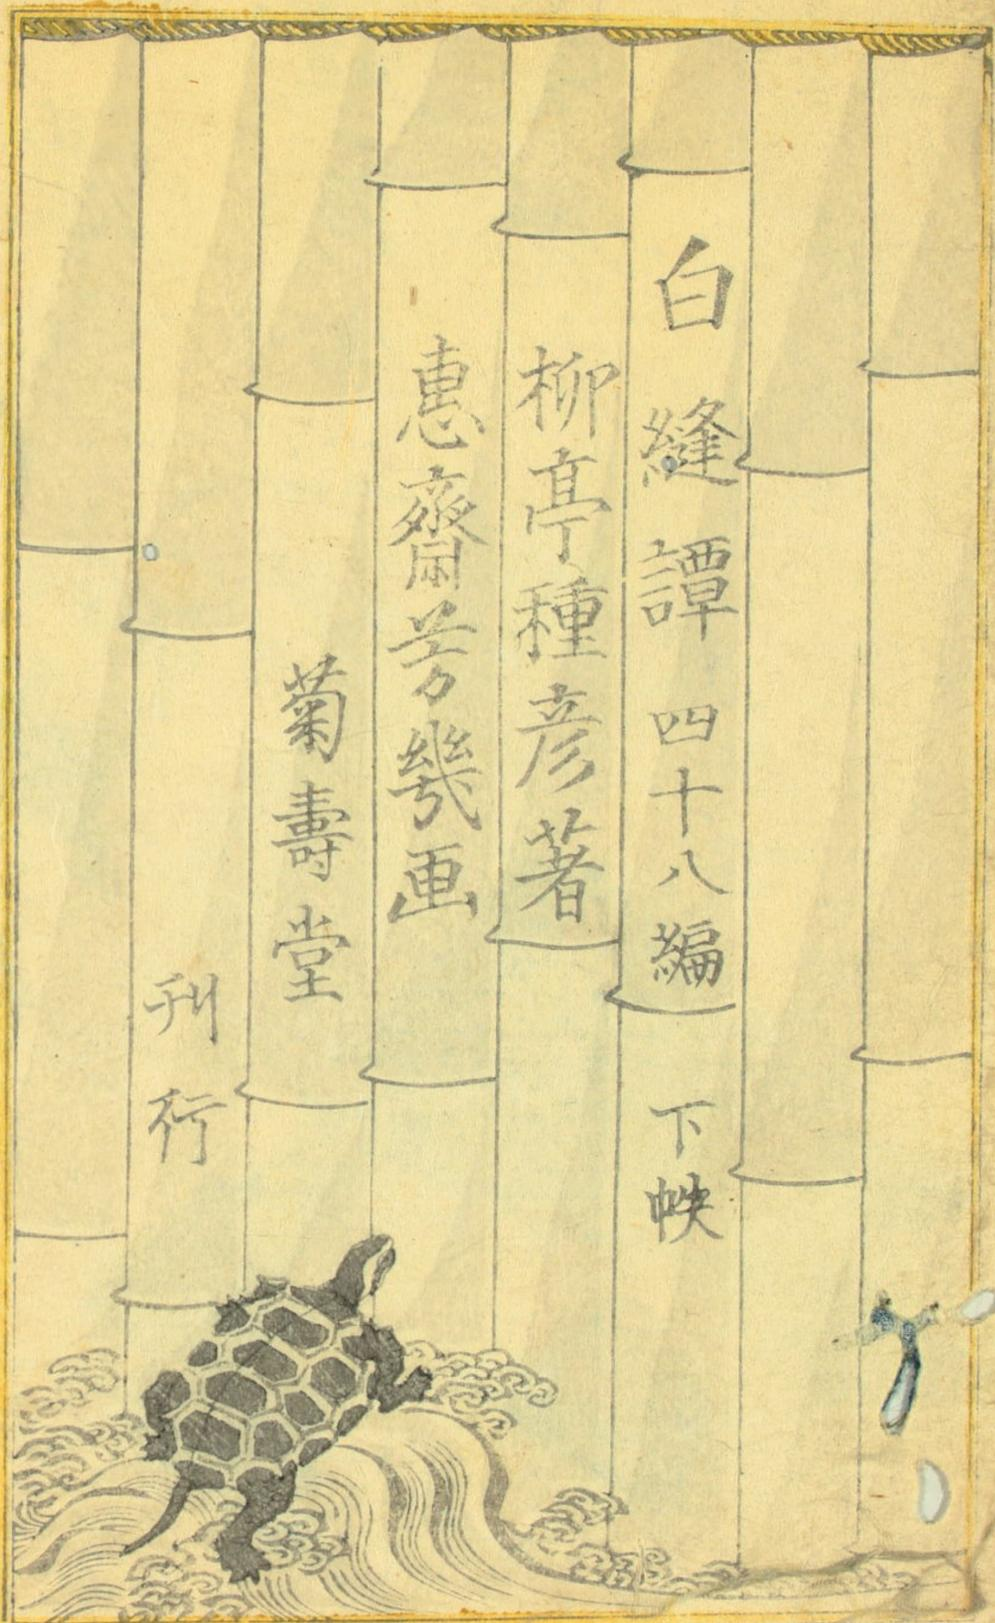 白縫譚四十八編 下帙
柳亭種彦著
惠齋芳幾画
菊壽堂
刊行